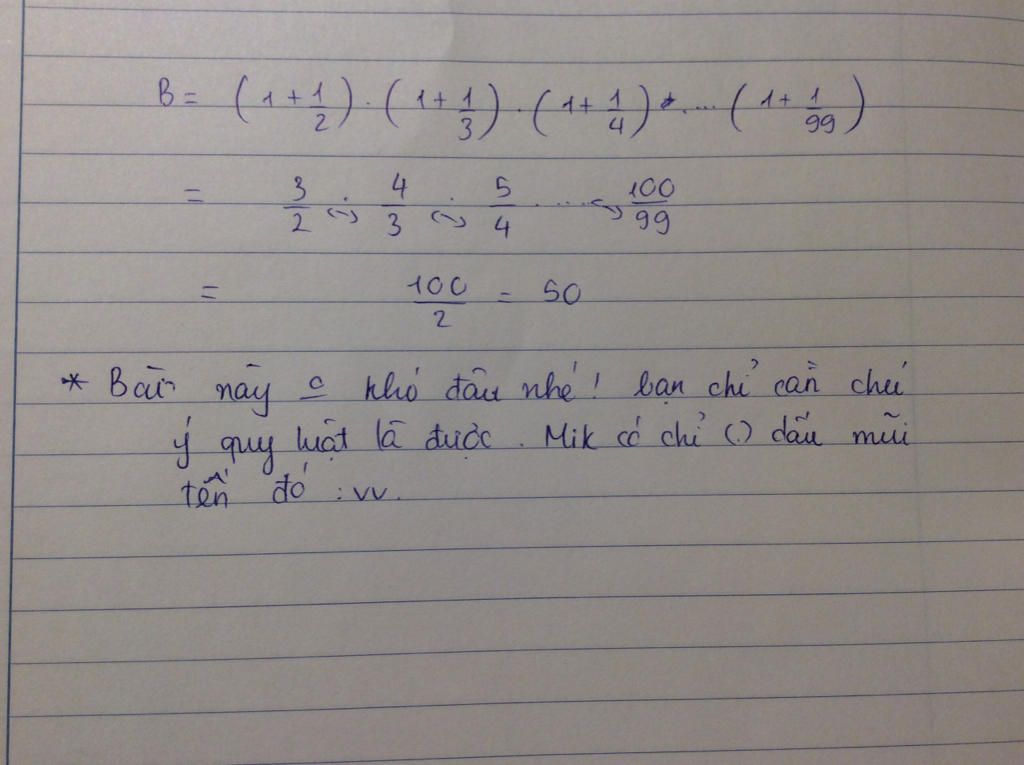 B = (1 + 1/2) . (1 + 1/3) . (1 + 1/4) . ... (1 + 1/99)
= 3/2 . 4/3 . 5/4 . ... 100/99
= 100/2 = 50
* Bài này c khó đâu nhé! bạn chỉ cần chú
ý quy luật là được. Mik có chỉ (.) dấu mũi
tên đó :vv.